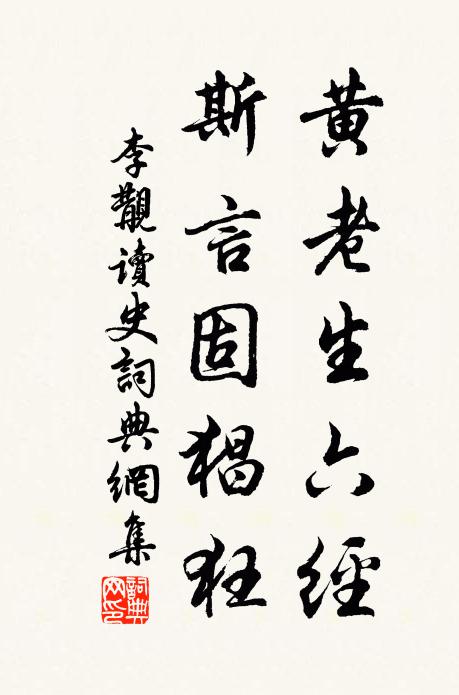 黄老生六經
斯言固猖狂
李覯讀史詞典網集
詞典
网印